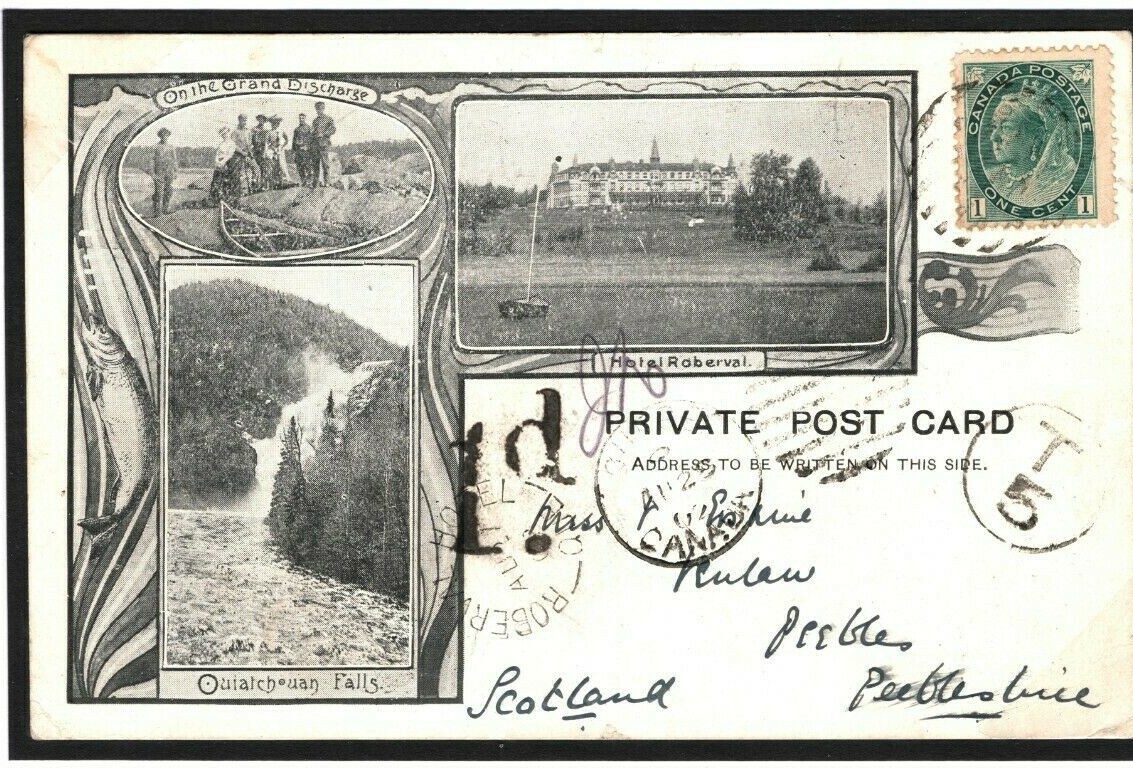 On the Grand Discharge
CANADA POSTAGE
1 ONE CENT 1
Hotel Roberval.
1d
PRIVATE POST CARD
ADDRESS TO BE WRITTEN ON THIS SIDE.
T
5
AU 2
CANADA
ROBERV
AU
1.
Miss
Peebles
Ouiatchouan Falls.
Scotland
Peeblesshire